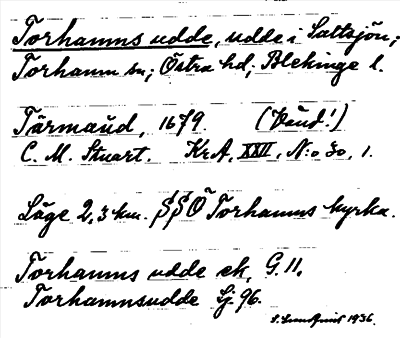 Torhamns udde, udde i Saltsjön;
Torhamn sn; Östra hd; Blekinge l.
Tärmaüd, 1679. (Väud!)
C. M. Stuart. KrA, XXII, N:o 30, 1.
Läge 2,3 km. SSO Torhamns kyrka.
Torhamns udde ek, G.11.
Torhamnsudde Lj. 96.
1936.